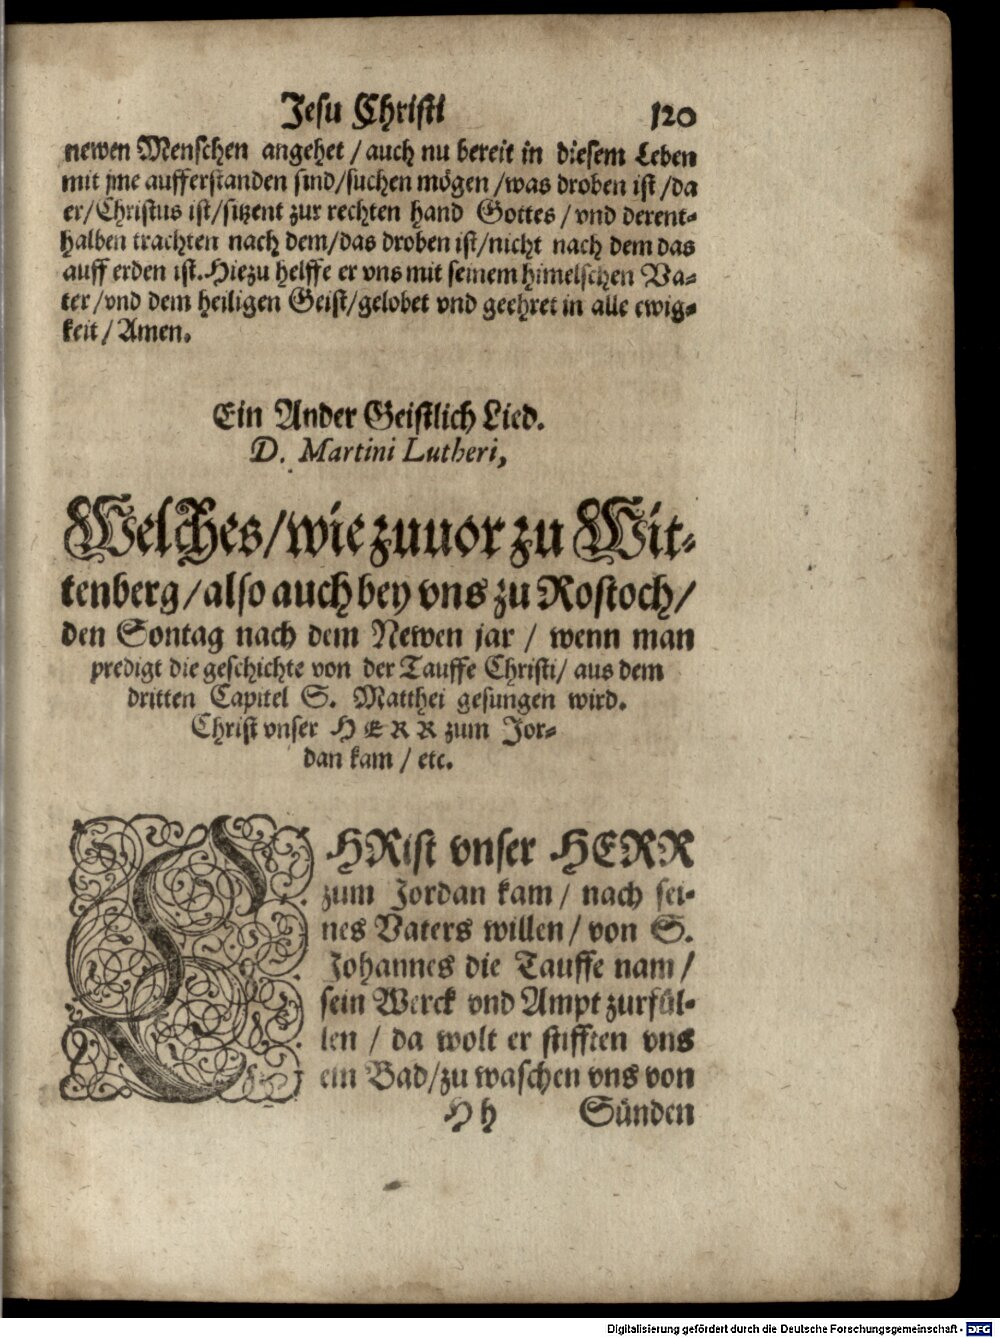 Jesu Christi 120
newen Menschen angehet / auch nu bereit in diesem Leben
mit jme aufferstanden sind/suchen mögen /was droben ist /da
er/Christus ist/sitzent zur rechten hand Gottes / vnd derent-
halben trachten nach dem/das droben ist/nicht nach dem das
auff erden ist. Hiezu helffe er vns mit seinem himelschen Va-
ter /vnd dem heiligen Geist/gelobet vnd geehret in alle ewig-
keit / Amen.
Ein Ander Geistlich Lied.
D. Martini Lutheri,
Welches/wie zuuor zu Wit-
tenberg/also auch bey vns zu Rostoch/
den Sontag nach dem Newen jar / wenn man
predigt die geschichte von der Tauffe Christi/ aus dem
dritten Capitel S. Matthei gesungen wird.
Christ vnser HERR zum Jor-
dan kam / etc.
CHRist vnser HERR
zum Jordan kam / nach sei-
nes Vaters willen / von S.
Johannes die Tauffe nam /
sein Werck vnd Ampt zurfül-
len / da wolt er stifften vns
ein Bad/zu waschen vns von
H h Sünden
Digitalisierung gefördert durch die Deutsche Forschungsgemeinschaft - DFG